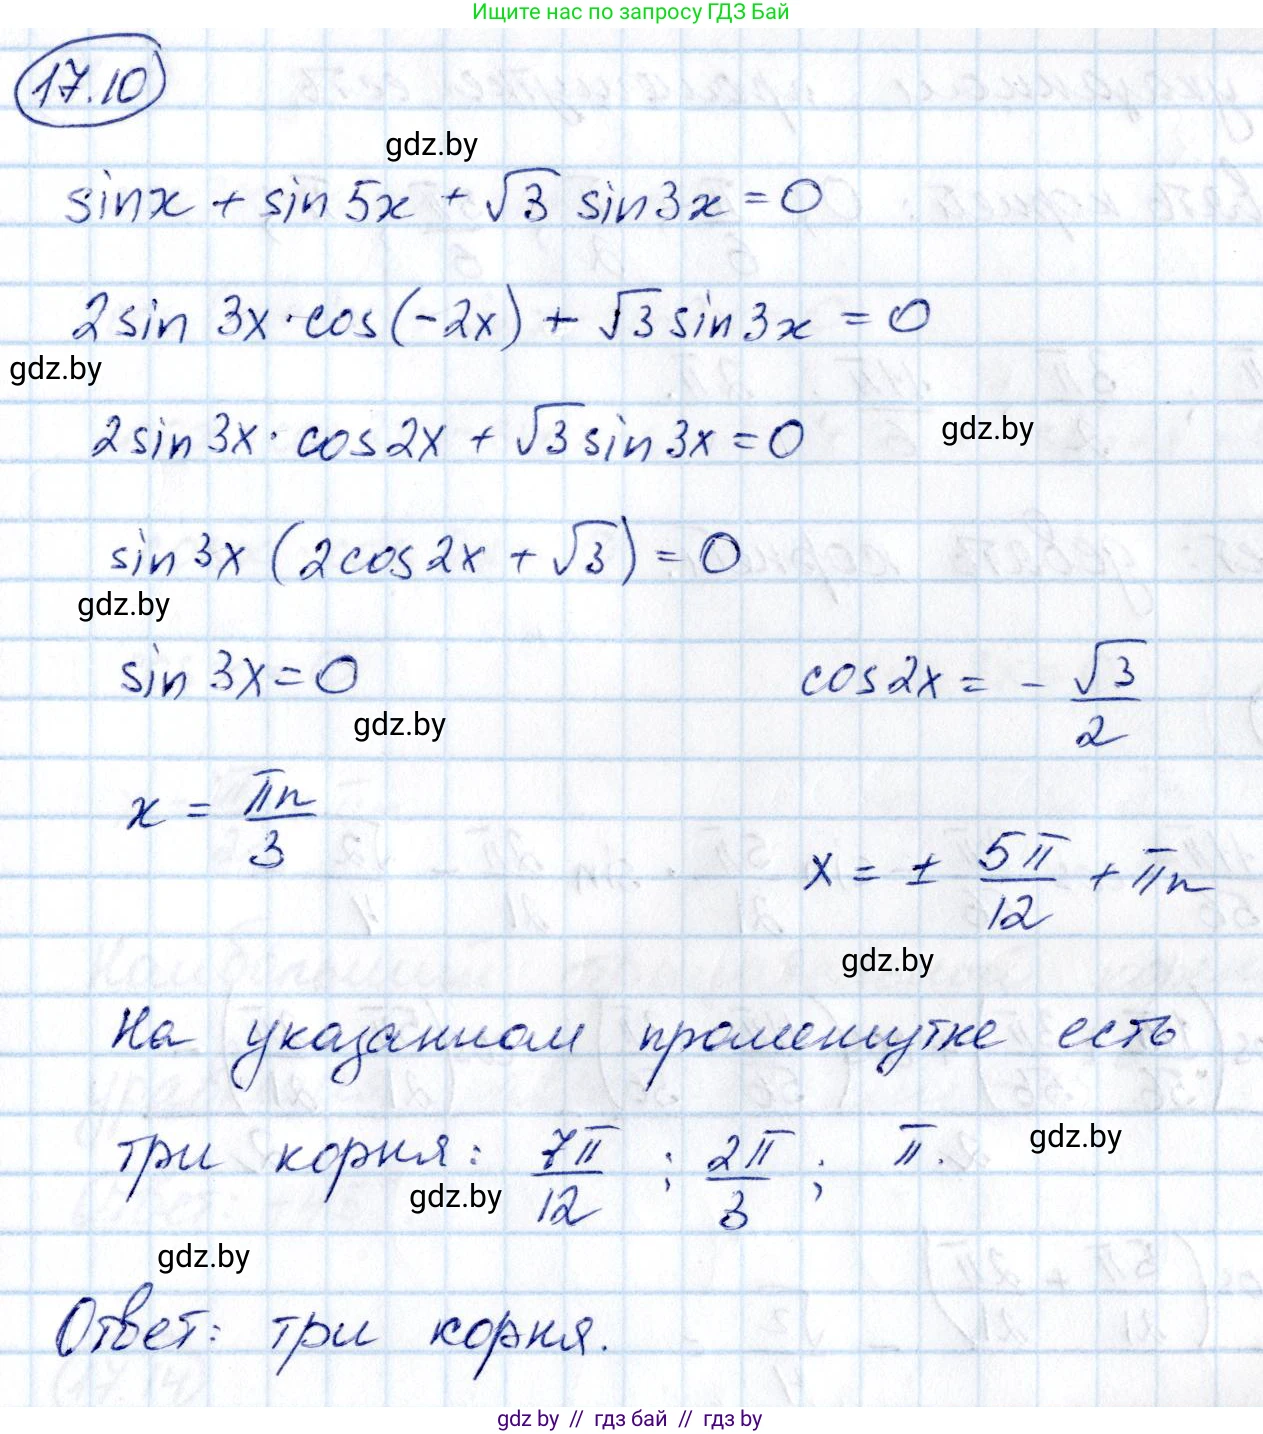 Ищите нас по запросу ГДЗ Бай
17.10
gdz.by
sin x + sin 5x + √3 sin 3x = 0
2 sin 3x · cos(-2x) + √3 sin 3x = 0
gdz.by
2 sin 3x · cos 2x + √3 sin 3x = 0
gdz.by
sin 3x (2 cos 2x + √3) = 0
gdz.by
sin 3x = 0 cos 2x = - √3/2
gdz.by
x = πn/3
x = ± 5π/12 + πn
gdz.by
На указанном промежутке есть
три корня: 7π/12 ; 2π/3 ; π.
gdz.by
gdz.by
gdz.by
Ответ: три корня.
gdz by // гдз бай // гдз by